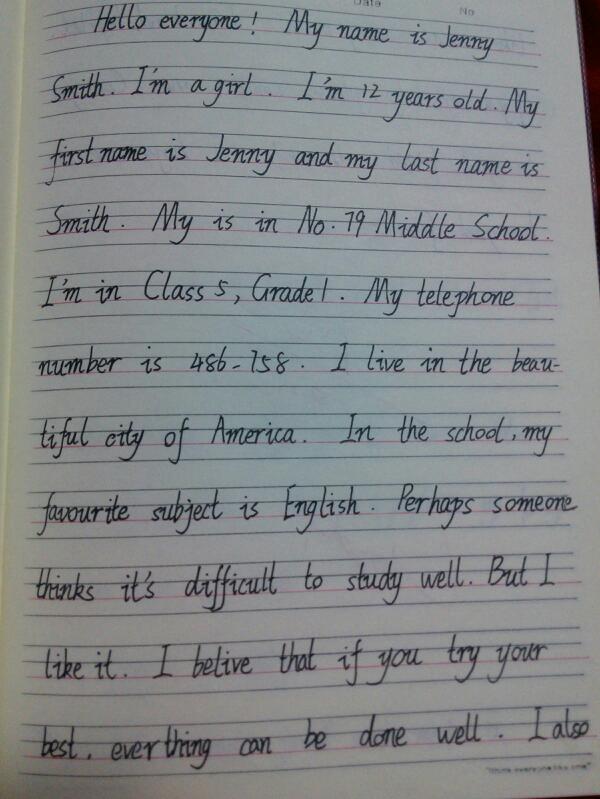 Date No
Hello everyone! My name is Jenny
Smith. I'm a girl. I'm 12 years old. My
first name is Jenny and my last name is
Smith. My is in No. 79 Middle School.
I'm in Class 5, Grade 1. My telephone
number is 486-758. I live in the beau-
tiful city of America. In the school, my
favourite subject is English. Perhaps someone
thinks it's difficult to study well. But I
like it. I belive that if you try your
best, everthing can be done well. I also